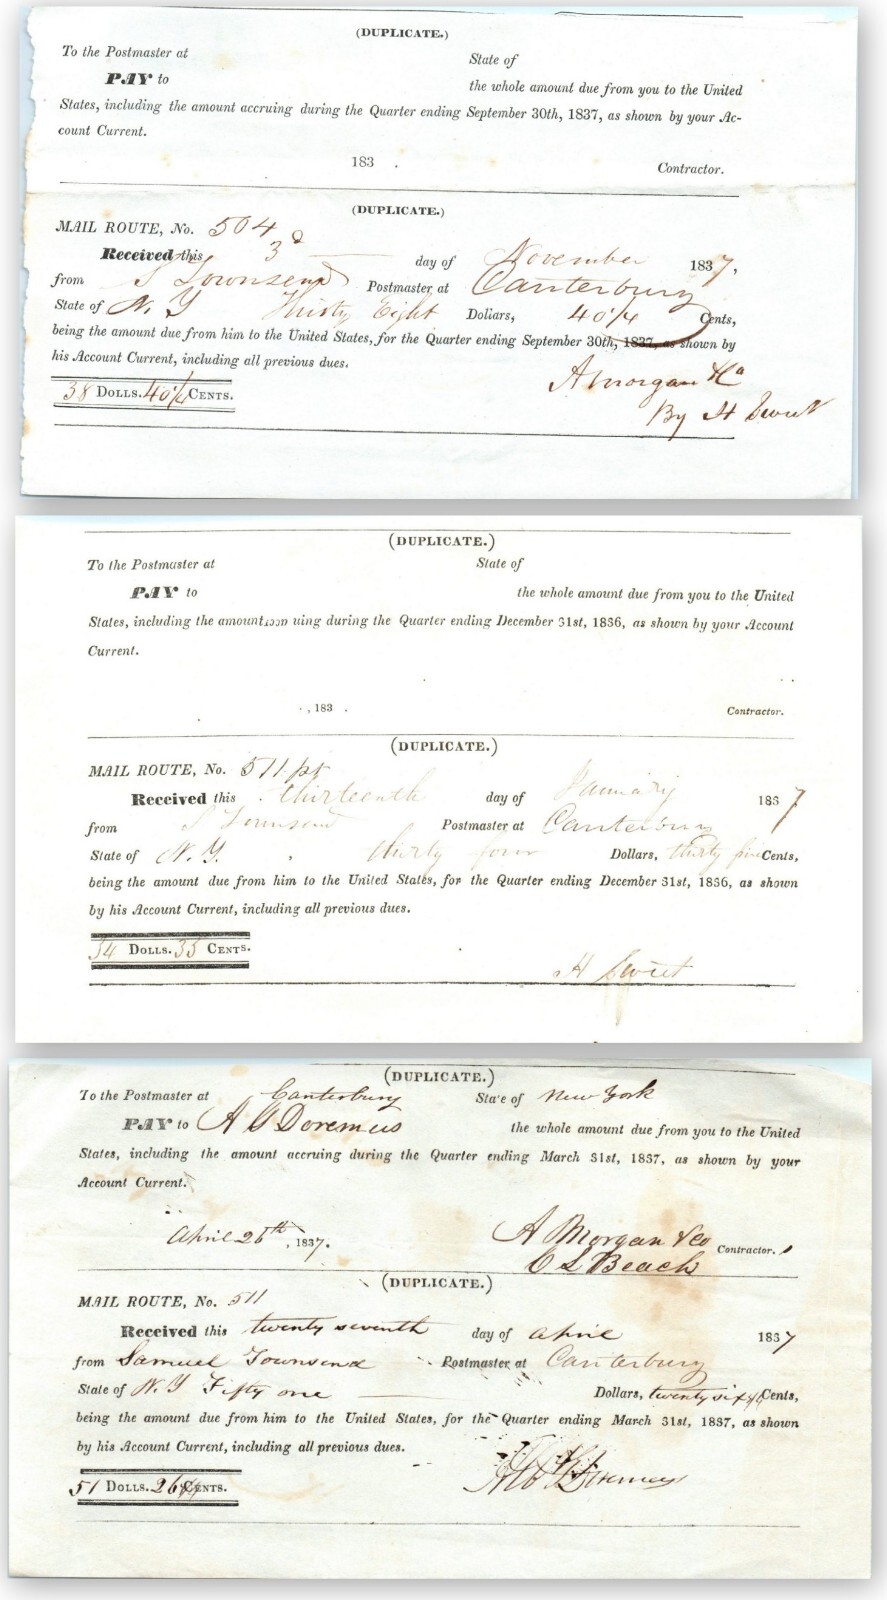 (DUPLICATE.)
To the Postmaster at State of
PAY to the whole amount due from you to the United
States, including the amount accruing during the Quarter ending September 30th, 1837, as shown by your Ac-
count Current.
183 .
Contractor.
(DUPLICATE.)
MAIL ROUTE, No. 504
Received this 3d day of November 1837,
from S Townsend Postmaster at Canterbury
State of N. Y Thirty Eight Dollars, 40 1/4 Cents,
being the amount due from him to the United States, for the Quarter ending September 30th, 1837, as shown by
his Account Current, including all previous dues.
A Morgan & Co
38 DOLLS. 40 1/4 CENTS.
By H Sweet
(DUPLICATE.)
To the Postmaster at State of
PAY to the whole amount due from you to the United
States, including the amount uing during the Quarter ending December 31st, 1836, as shown by your Account
Current.
, 183 .
Contractor.
(DUPLICATE.)
MAIL ROUTE, No. 511 pt
Received this thirteenth day of January 1837
from S Townsend Postmaster at Canterbury
State of N. Y. thirty four Dollars, thirty five Cents,
being the amount due from him to the United States, for the Quarter ending December 31st, 1836, as shown
by his Account Current, including all previous dues.
34 DOLLS. 35 CENTS.
H Sweet
(DUPLICATE.)
To the Postmaster at Canterbury State of New York
PAY to A G Doremus the whole amount due from you to the United
States, including the amount accruing during the Quarter ending March 31st, 1837, as shown by your
Account Current.
April 26th, 1837.
A Morgan & Co Contractor.
C L Beach
(DUPLICATE.)
MAIL ROUTE, No. 511
Received this twenty seventh day of April 1837
from Samuel Townsend Postmaster at Canterbury
State of N. Y Fifty one Dollars, twenty six Cents,
being the amount due from him to the United States, for the Quarter ending March 31st, 1837, as shown
by his Account Current, including all previous dues.
51 DOLLS. 26 CENTS.
Doremus